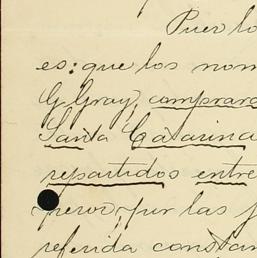 Pues lo
es: que los nom
G Gray, comprara
Santa Catarina
repartidos entre
peror, por las f
referida constan